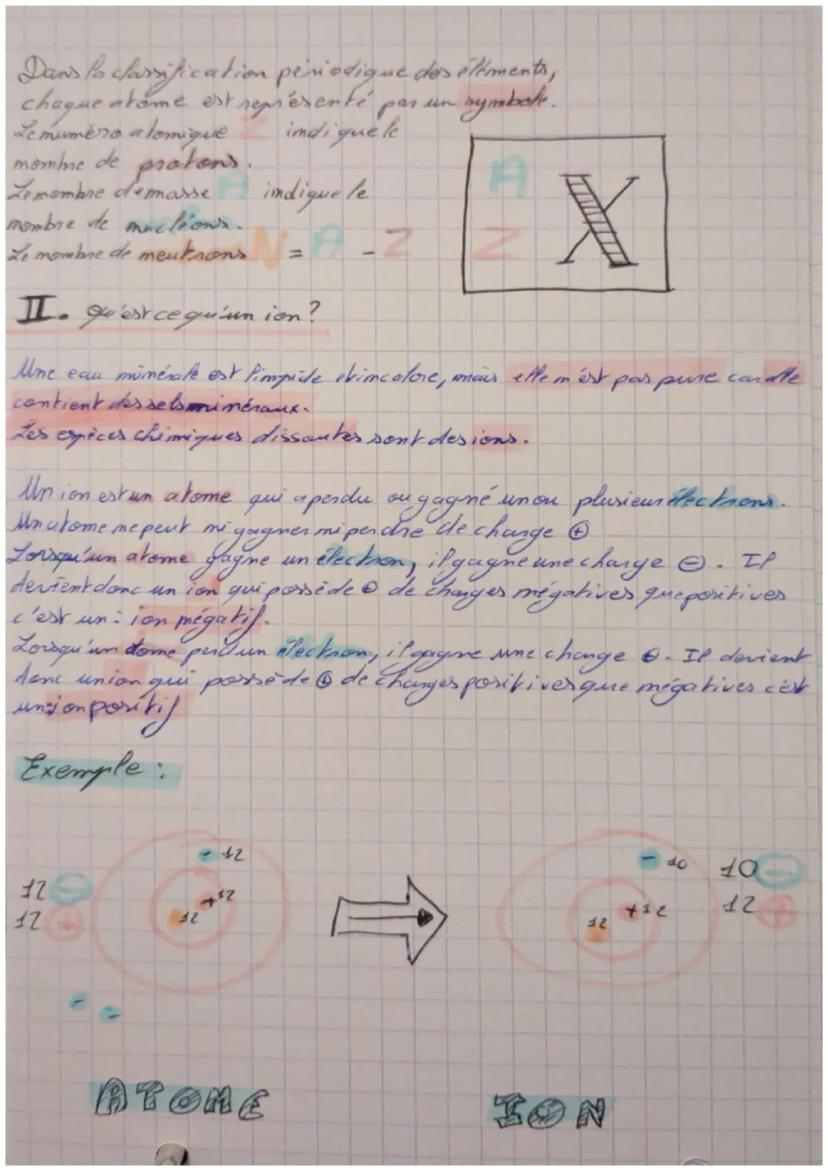 Dans la classification périodique des éléments,
chaque atome est représenté par un symbole.
Le numéro atomique Z indique le
nombre de protons.
Le nombre de masse A indique le
nombre de nucléons.
Le nombre de neutrons N = A - Z
A
Z
X
II. Qu'est ce qu'un ion?
Une eau minérale est limpide et incolore, mais elle n'est pas pure car elle
contient des sels minéraux.
Les espèces chimiques dissoutes sont des ions.
Un ion est un atome qui a perdu ou gagné un ou plusieurs électrons.
Un atome ne peut ni gagner ni perdre de charge ⊕
Lorsqu'un atome gagne un électron, il gagne une charge ⊖. Il
devient donc un ion qui possède ⊕ de charges négatives que positives
c'est un : ion négatif.
Lorsqu'un atome perd un électron, il gagne une charge ⊕. Il devient
donc un ion qui possède ⊕ de charges positives que négatives c'est
un : ion positif
Exemple :
- 12
+12
12
12 -
12 +
- -
- 10
+12
12
10 -
12 +
ATOME
ION